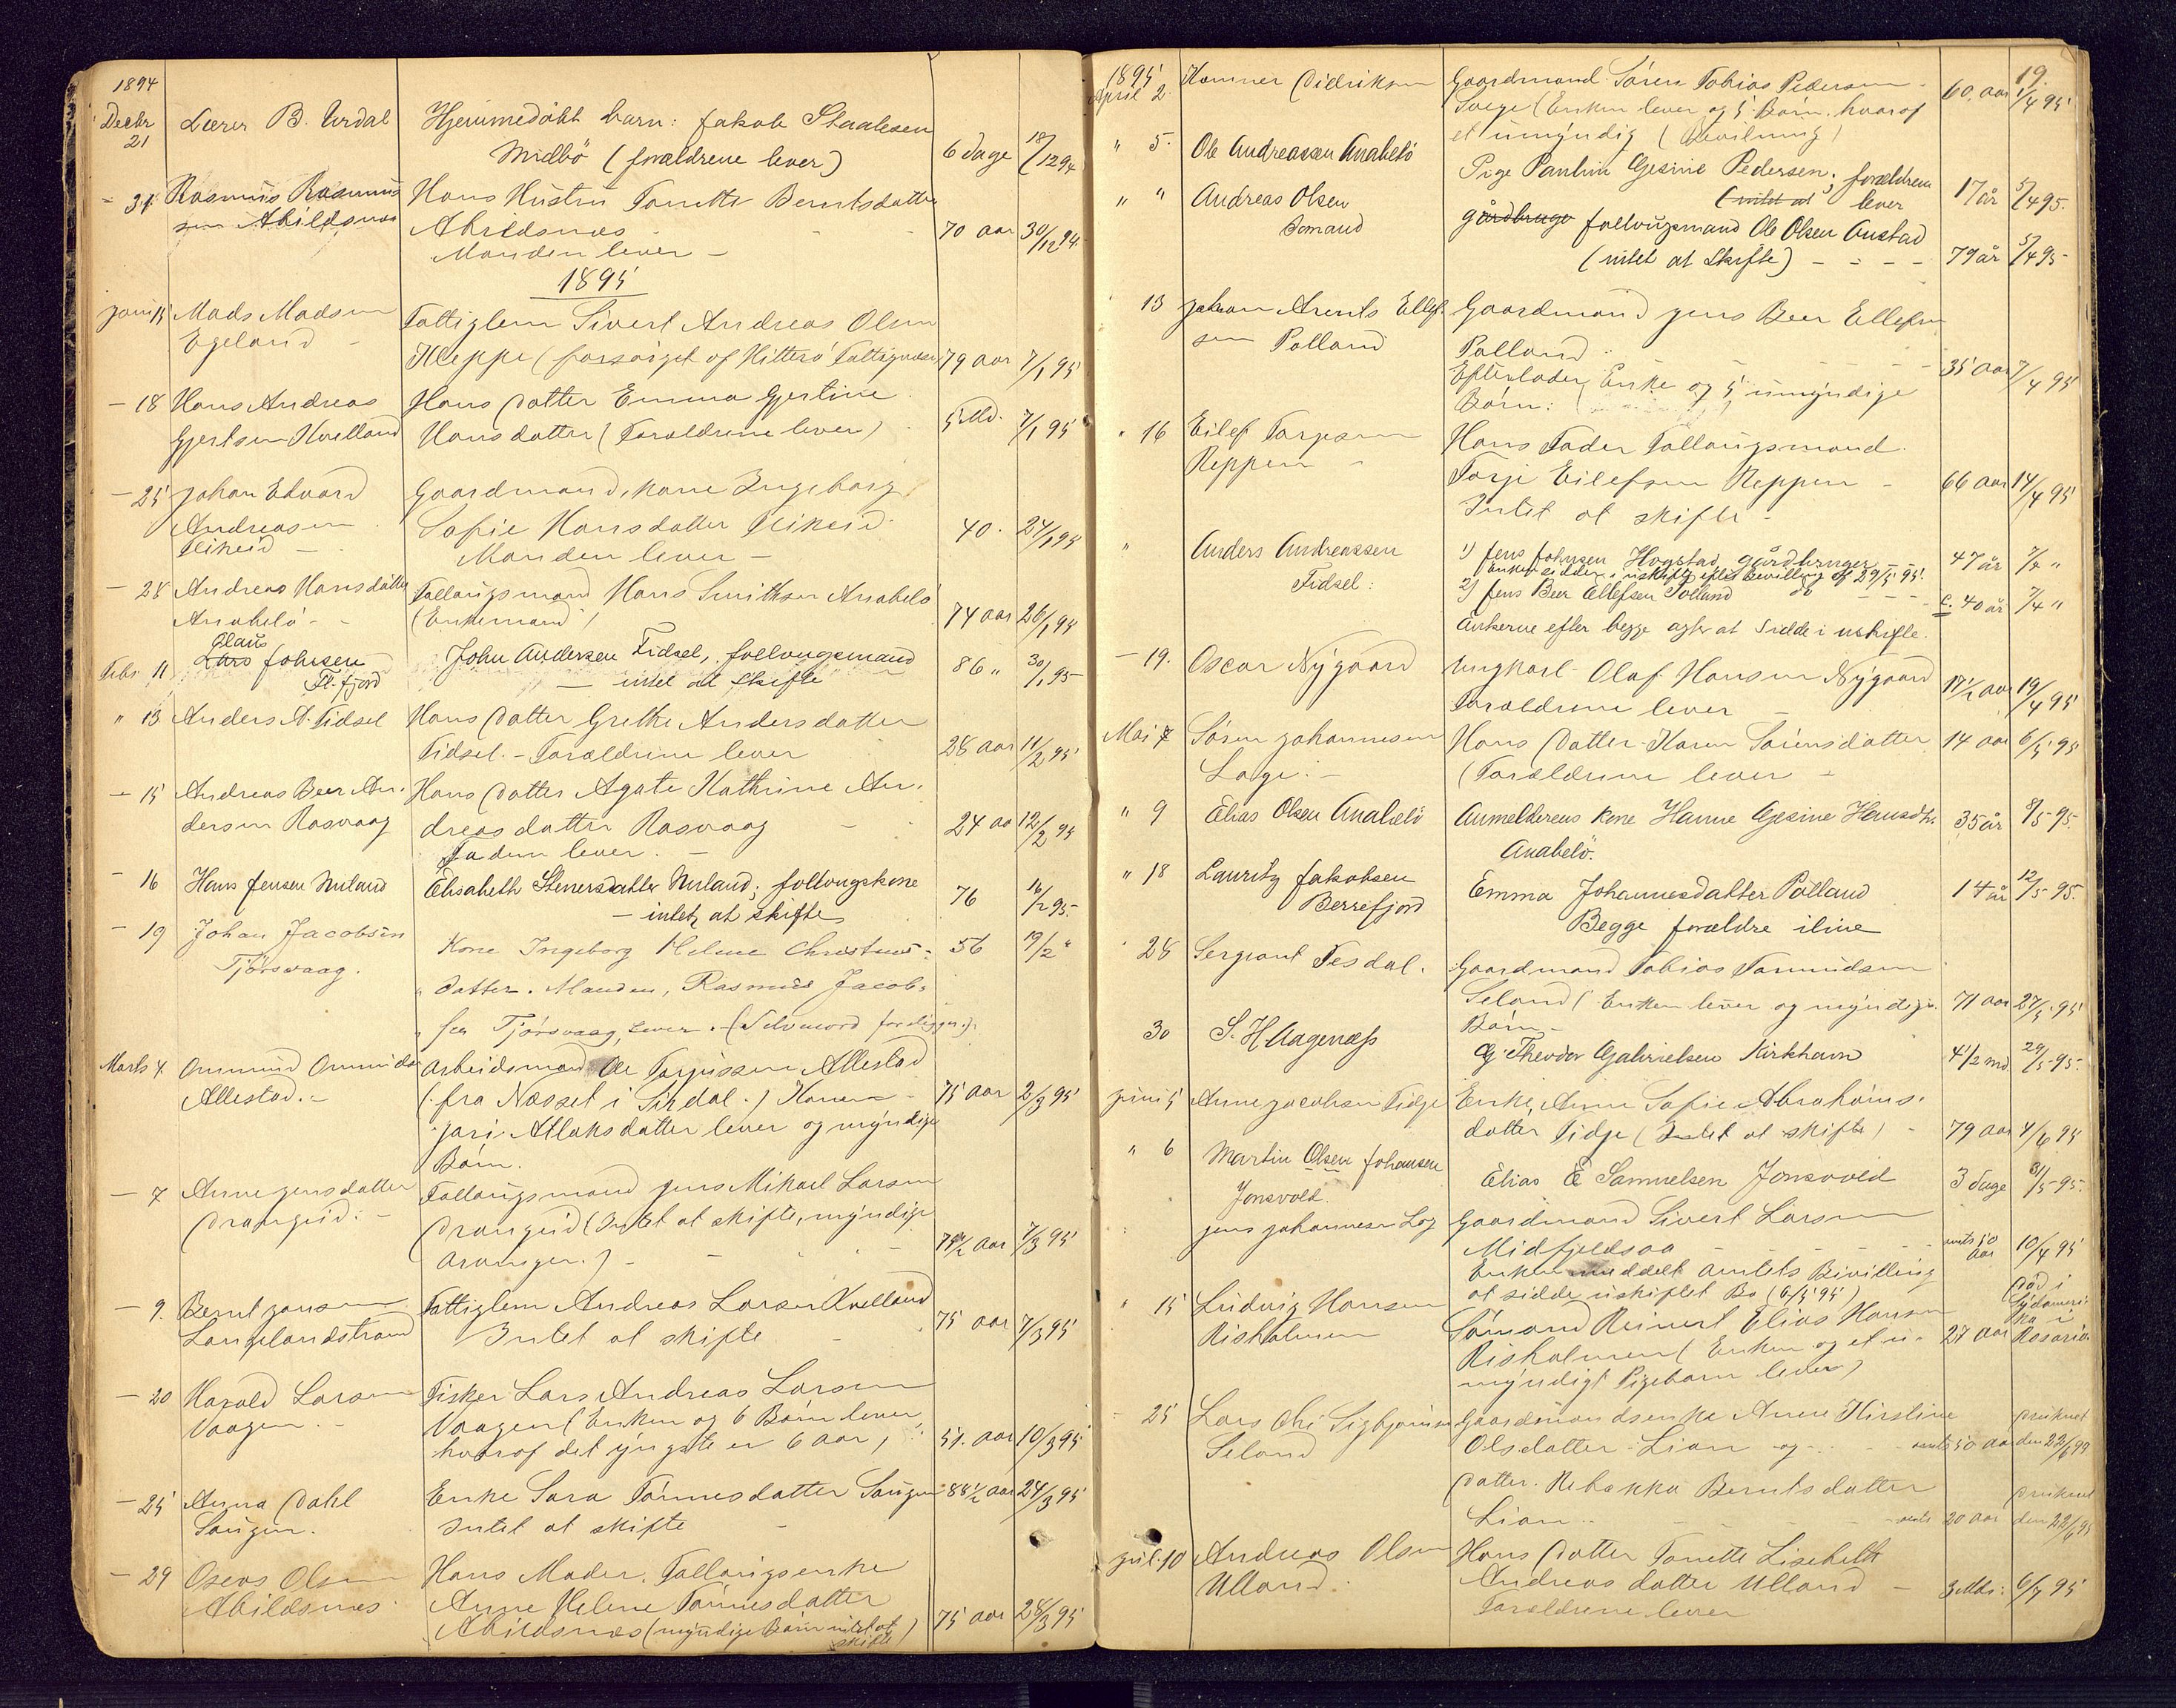 1894
Decbr 21 Lærer B. Urdal Hjemmedöbt barn: Jakob Staalesen
Midbö (forældrene lever) 6 dage 18/12 94
- 31 Rasmus Rasmus Hans Hustru Tonette Berntsdatter
sen Abildsnæs Abildsnæs - - 70 aar 30/12 94
Manden lever -
1895
Mads Madsen Fattiglem Sivert Andreas Olsen
Egeland - Kleppe (forsörget af Hitterö Fattigvæsen 79 aar 7/1 95
- 18 Hans Andreas Hans Datter Emma Gjertine
Gjertsen Hansdatter (Forældrene lever) 5 Md. 7/1 95
- 25 Johan Edvard Gaardmandskone Ingeborg
Andreasen Sofie Hansdatter 40. 24/1 95
Manden lever -
- 28 Andreas Hansdatter Follaugsmand Hans Anabelö
Anabelö - - (Enkemand) 74 aar 26/1 95
Olaus
Febr 11 Lars Johnsen John Andersen Fidsel, follougsmand 86 " 30/1 95
Fl.fjord - intet at skifte
" 13 Anders A. Fidsel Hans Datter Grethe Andersdatter
Fidsel. - Forældrene lever 28 aar 11/2 95
- 15 Andreas Beer An- Hans Datter Agate Kathrine An-
dersen Rasvaag dreasdatter Rasvaag - 24 aa 12/2 95
Faderen lever. -
- 16 Hans Jensen Nuland Elisabeth Stenersdatter Nuland; follougskone 76 16/2 95.
- intet at skifte
- 19 Johan Jacobsen Kone Ingeborg Helene Christens- 56 19/2 "
Tjörsvaag. datter. Manden, Rasmus Jacob-
sen Tjörsvaag, lever. - (Selvmord foreligger.).
Marts 4 Ommund Ommunds Arbeidsmand Ole Torjussen Allestad
Allestad. - (fra Næsset i Sirdal.) Konen - 75 aar 2/3 95
Jari Atlaksdatter lever og myndige
Börn.
- 7 Anne Jensdatter Follaugsmand Jens Mikael Larsen
Drangeid. - Drangeid (Intet at skifte, myndige
Arvinger.) - - - 7/3 95
- 9. Bernt Jansen Fattiglem Andreas Larsen Kvelland
Langelandstrand Intet at skifte - 75 aar 7/3 95
- 20 Harald Larsen Fisker Lars Andreas Larsen
Vaagen. - Vaagen (Enken og 6 Börn lever,
hvoraf det yngste er 6 aar) 51. aar 10/3 95
- 25 Anna Dahl Enke Sara Tönnesdatter 88 1/2 aar 24/3 95
Intet at skifte -
- 29 Oseas Olsen Hans Moder. Follaugsenke
Abildsnæs Anne Helene Tönnesdatter
Abildsnæs (myndige Börn intet at 75 aar 28/3 95
skifte)
19.
1895
April 2. Didriksen Gaardmand Sören Tobias Pedersen - 60. aar 1/4 95
(Enken lever og 5 Börn. hvoraf
et umyndig (Bevilning)
" 5. Ole Andreassen Anabelö Pige Pauline Gesine Pedersen; forældrene 17 år 5/4 95.
(intet at lever
" " Andreas Olsen gårdbruger follougsmand Ole Olsen Austad
Sömand (intet at Skifte) - - - - 79 år 5/4 95-
13 Johan Arents Ellef- Gaardmand Jens Beer Ellefsen
sen Polland Polland - - - 35 aar 7/4 95
Efterlader Enke og 5 umyndige
Börn:
" 16 Eilef Torjesen Hans Fader Follaugsmand
Reppen - Torje Eilefsen Reppen - 66 aar 14/4 95
Intet at skifte -
" Anders Andreassen 1) Jens Johnsen Hogstad, gårdbruger - - 47 år 7/4 "
Fidsel: enken sidder i uskifte efter bevilling af 29/5 95.
2) Jens Beer Ellefsen Polland do - - - c. 40 år 7/4 "
Enkerne efter begge agter at sidde i uskifte.
- 19. Oscar Nygaard Ungkarl - Olaf Hansen Nygaard 17 1/2 aar 19/4 95
Forældrene lever -
Mai 7 Sören Johannesen Hans Datter - Karen Sörensdatter 14 aar 6/5 95
Loge. - (Forældrene lever -
" 9 Elias Olsen Anabelö Anmelderens kone Hanne Gesine Hansdtr. 35 år 8/5 95.
Anabelö.
" 18 Lauritz Jakobsen Emma Johannesdatter Polland 14 år 12/5 95.
Berrefjord Begge forældre ilive
" 28 Sergeant Fesdal. Gaardmand Tobias Tommesen
Seland (Enken lever og myndige 71 aar 27/5 95
Börn -
30 S. H. Aagenæss G. Theodor Gabrielsen Kirkhavn 4 1/2 md 29/5 95.
Juni 5 Anne Jacobsen Fidje Enke, Anne Sofie Abrahams-
datter Fidje (Intet at skifte) - 79 aar 4/6 95
" 6 Martin Olsen Johansen Elias E Samuelsen Jonsvold 3 dage 8/5 95.
Jonsvold.
Jens Johannesen Log Gaardmand Sivert Larsen
Midfjeldsaa - - - 50 aar 10/4 95
Enken meddelt Amtets Bivilling
at sidde i uskiftet Bo (6/5 95)
" 15 Ludvig Hansen Sömand Reinert Elias Hansen 27 aar Död i Sydameri- ka i Rosario.
Risholmen Risholmen (Enken og et u-
myndigt Pigebarn lever)
- 25 Lars Ole Sigbjörnsen Gaardmandsenke Anne Kirstine
Seland Olsdatter - Lian - og - 50 aar druknet den 22/6 95
Datter. Rebekka Berntsdatter
Lian - - 20 aar druknet den 22/6 95
Juli. 10 Andreas Olsen Hans Datter Tonette Lisebeth
Ulland. Andreasdatter Ulland - 3 Mdr. 6/7 95
Forældrene lever